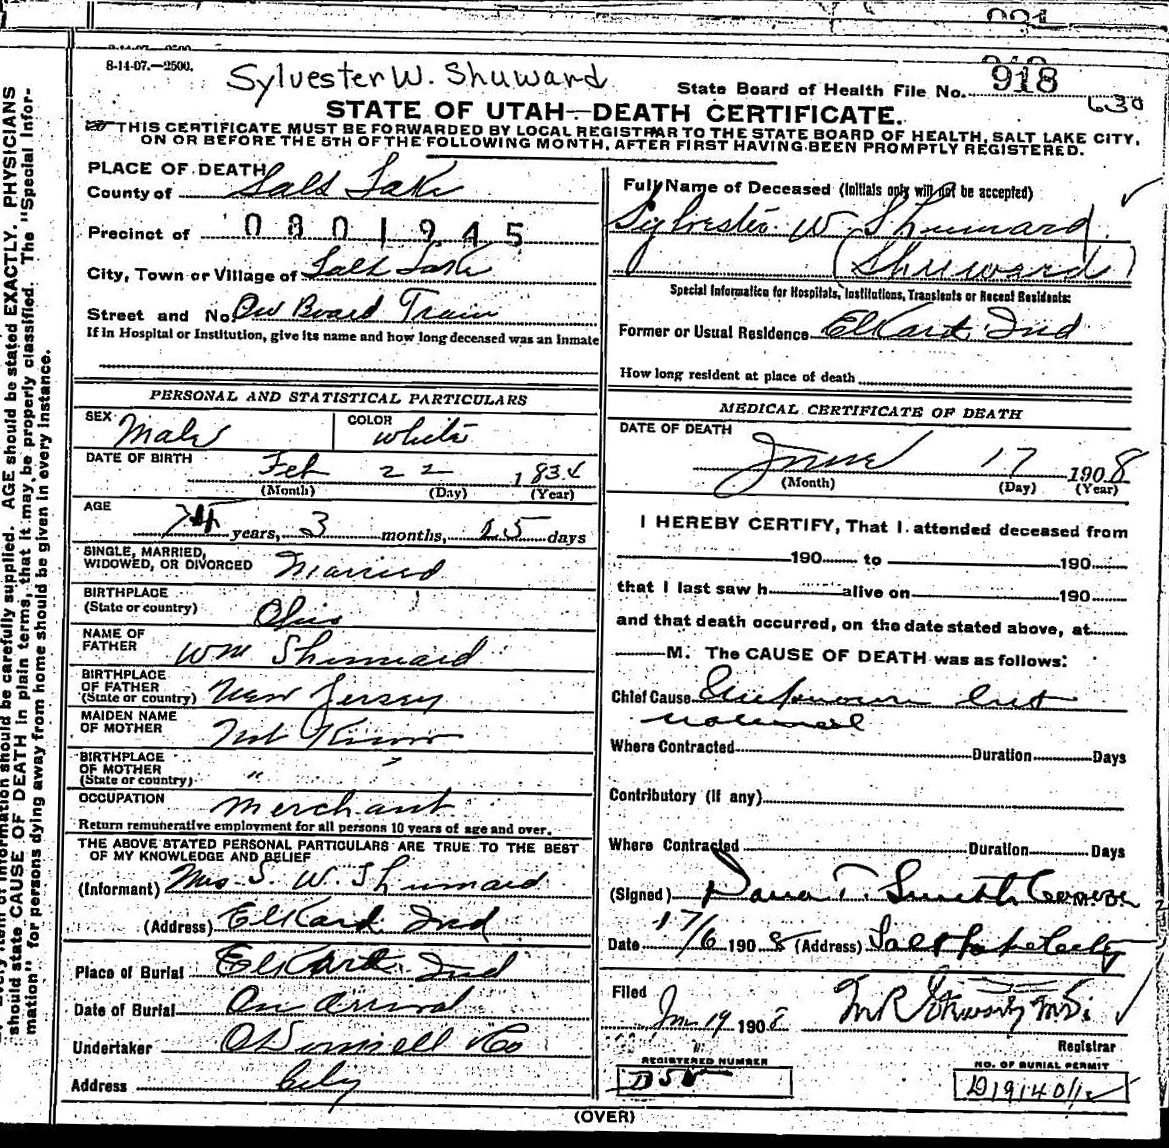 8-14-07.—2500.
Sylvester W. Shuward
State Board of Health File No. 918
630
STATE OF UTAH—DEATH CERTIFICATE.
THIS CERTIFICATE MUST BE FORWARDED BY LOCAL REGISTRAR TO THE STATE BOARD OF HEALTH, SALT LAKE CITY,
ON OR BEFORE THE 5TH OF THE FOLLOWING MONTH, AFTER FIRST HAVING BEEN PROMPTLY REGISTERED.
PLACE OF DEATH
County of Salt Lake
Precinct of 0801945
City, Town or Village of Salt Lake
Street and No. On Board Train
If in Hospital or Institution, give its name and how long deceased was an inmate
PERSONAL AND STATISTICAL PARTICULARS
SEX Male COLOR White
DATE OF BIRTH Feb 22 1834
(Month) (Day) (Year)
AGE 74 years, 3 months, 25 days
SINGLE, MARRIED,
WIDOWED, OR DIVORCED Married
BIRTHPLACE
(State or country) Ohio
NAME OF
FATHER Wm Shumard
BIRTHPLACE
OF FATHER
(State or country) New Jersey
MAIDEN NAME
OF MOTHER Not Known
BIRTHPLACE
OF MOTHER
(State or country) " "
OCCUPATION Merchant
Return remunerative employment for all persons 10 years of age and over.
THE ABOVE STATED PERSONAL PARTICULARS ARE TRUE TO THE BEST
OF MY KNOWLEDGE AND BELIEF
(Informant) Mrs S. W. Shumard
(Address) Elkard Ind
Place of Burial Elkart Ind
Date of Burial On arrival
Undertaker O'Donnell & Co
Address City
Full Name of Deceased (Initials only will not be accepted)
Sylvester W. Shumard
(Shuward)
Special Information for Hospitals, Institutions, Transients or Recent Residents:
Former or Usual Residence Elkart Ind
How long resident at place of death
MEDICAL CERTIFICATE OF DEATH
DATE OF DEATH
June 17 1908
(Month) (Day) (Year)
I HEREBY CERTIFY, That I attended deceased from
190 to 190
that I last saw h alive on 190
and that death occurred, on the date stated above, at
M. The CAUSE OF DEATH was as follows:
Chief Cause Unknown but
natural
Where Contracted Duration Days
Contributory (if any)
Where Contracted Duration Days
(Signed) Dana T. Smith Coroner
Date 17/6 1908 (Address) Salt Lake City
Filed Jun 19 1908 M.D.
Registrar
REGISTERED NUMBER
NO. OF BURIAL PERMIT
(OVER)
should state CAUSE OF DEATH in plain terms, that it may be properly classified. The "Special Infor-
mation" for persons dying away from home should be given in every instance.